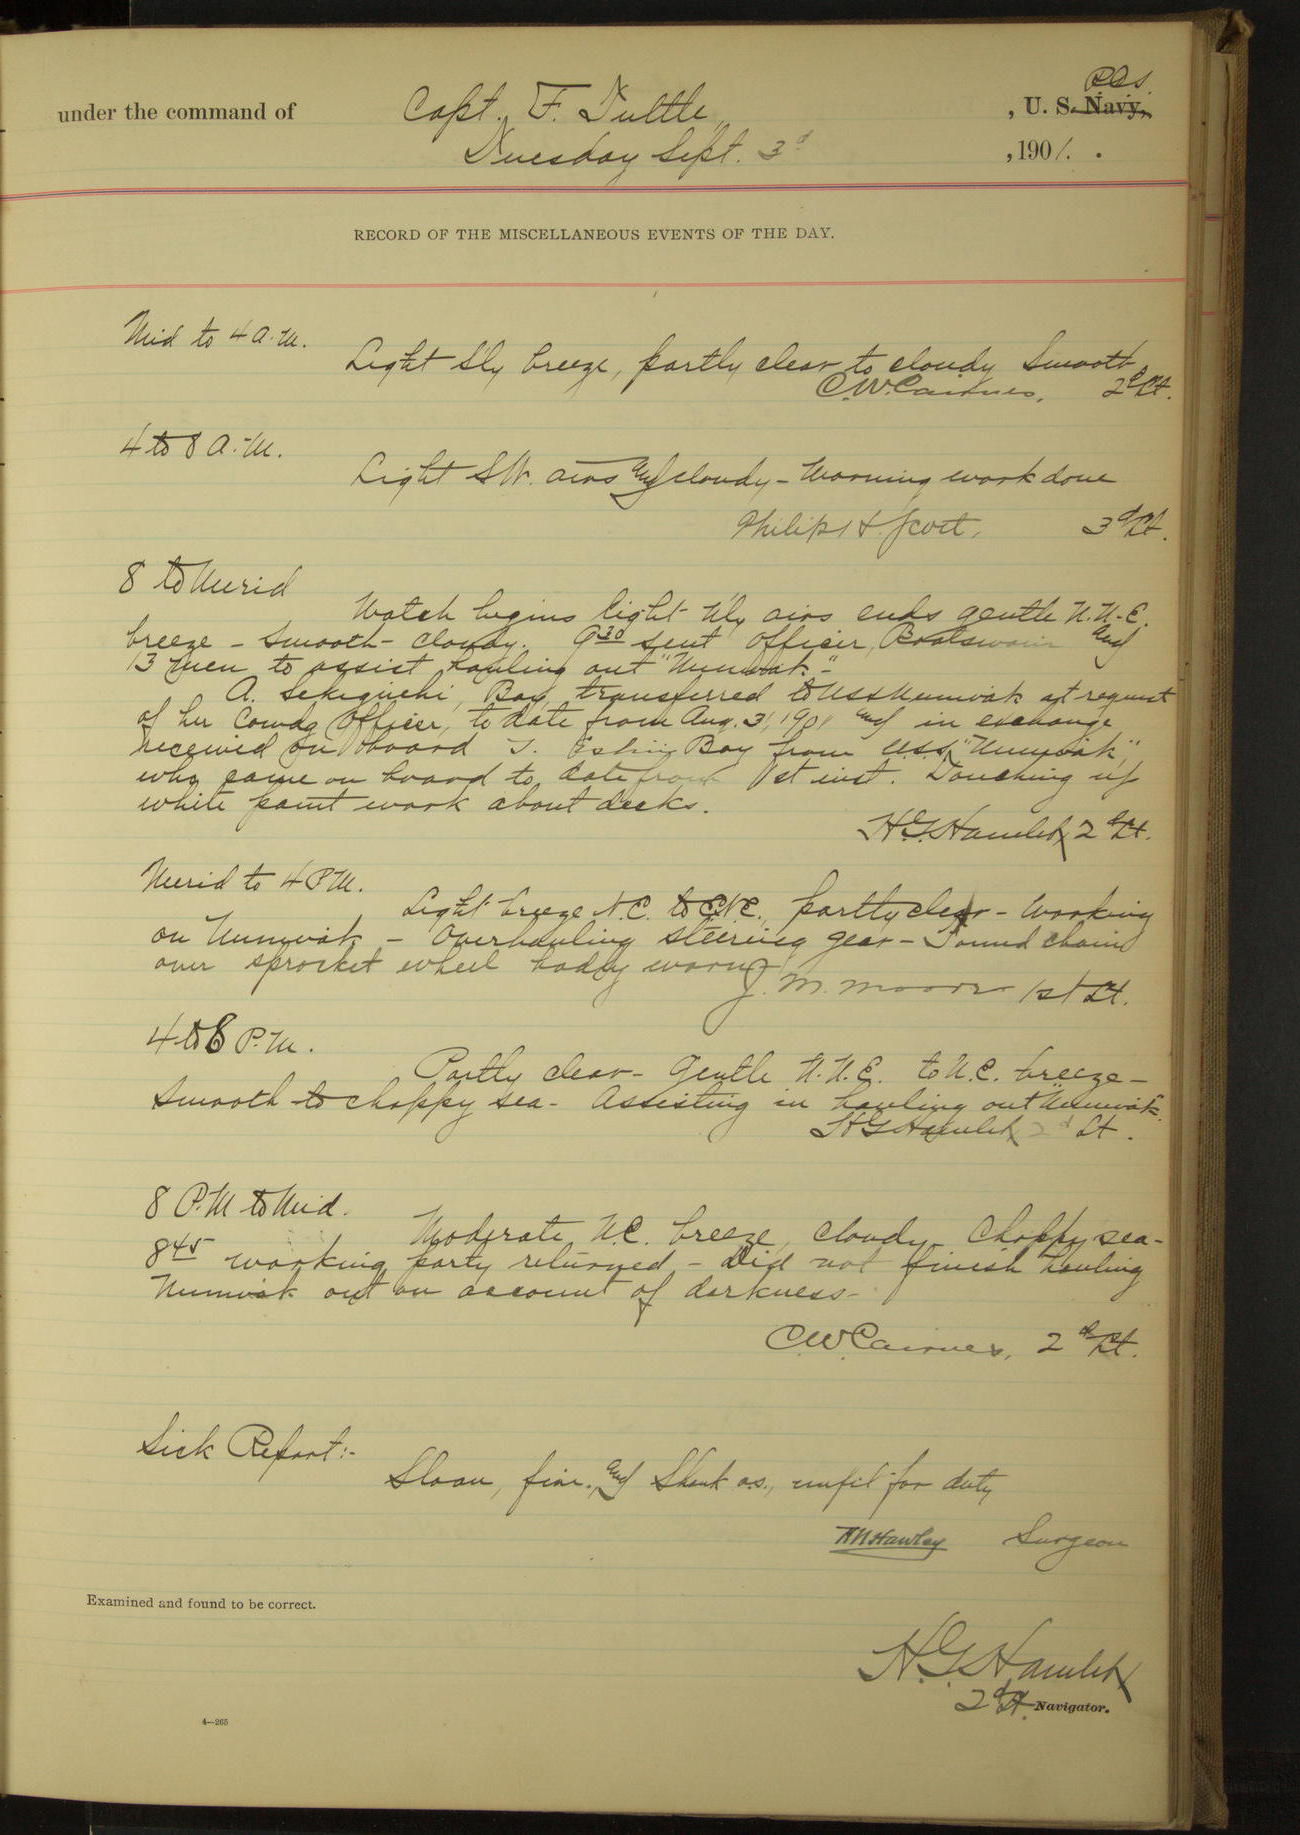 R.C.S.
under the command of Capt. F. Tuttle, , U. S. Navy,
Tuesday Sept. 3d , 1901. .
RECORD OF THE MISCELLANEOUS EVENTS OF THE DAY.
Mid to 4 A.M.
Light S'ly breeze, partly clear to cloudy Smooth
C.W. Cairnes, 2d Lt.
4 to 8 A.M.
Light SW. airs and cloudy - Morning work done
Philip H. Scott, 3d Lt.
8 to Merid
Watch begins light N'ly airs ends gentle N.N.E.
breeze - Smooth - cloudy. 930 sent Officer, Boatswain and
13 men to assist hauling out "Nunivak."
A. Sekiguchi, Boy, transferred to USS Nunivak at request
of her Comdg Officer, to date from Aug. 31, 1901 and in exchange
received on board T. Boy from U.S.S. "Nunivak",
who came on board to date from 1st inst. Touching up
white paint work about decks.
H.G. Hamlet 2d Lt.
Merid to 4 P.M.
Light breeze N.E. to E.N.E., partly clear - Working
on Nunivak - Overhauling steering gear - Found chain
over sprocket wheel badly worn
J. M. Moore 1st Lt.
4 to 8 P.M.
Partly clear - Gentle N.N.E. to N.E. breeze -
Smooth to choppy sea - Assisting in hauling out "Nunivak".
H G Hamlet 2d Lt.
8 P.M to Mid.
Moderate N.E. breeze, cloudy - Choppy sea -
845 working party returned - Did not finish hauling
Nunivak out on account of darkness -
C.W. Cairnes, 2d Lt.
Sick Report:-
Sloan, fire., and Shenk o.s., unfit for duty
Hawley Surgeon
Examined and found to be correct.
H.G. Hamlet
2d Lt. Navigator.
4—265